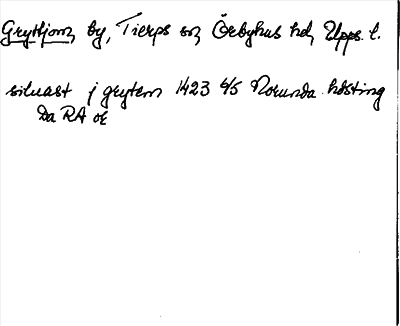 Gryttjom, by, Tierps sn, Örbyhus hd, Upps. l.
situast j grytem 1423 4/5 Norunda hösting
Da RA or